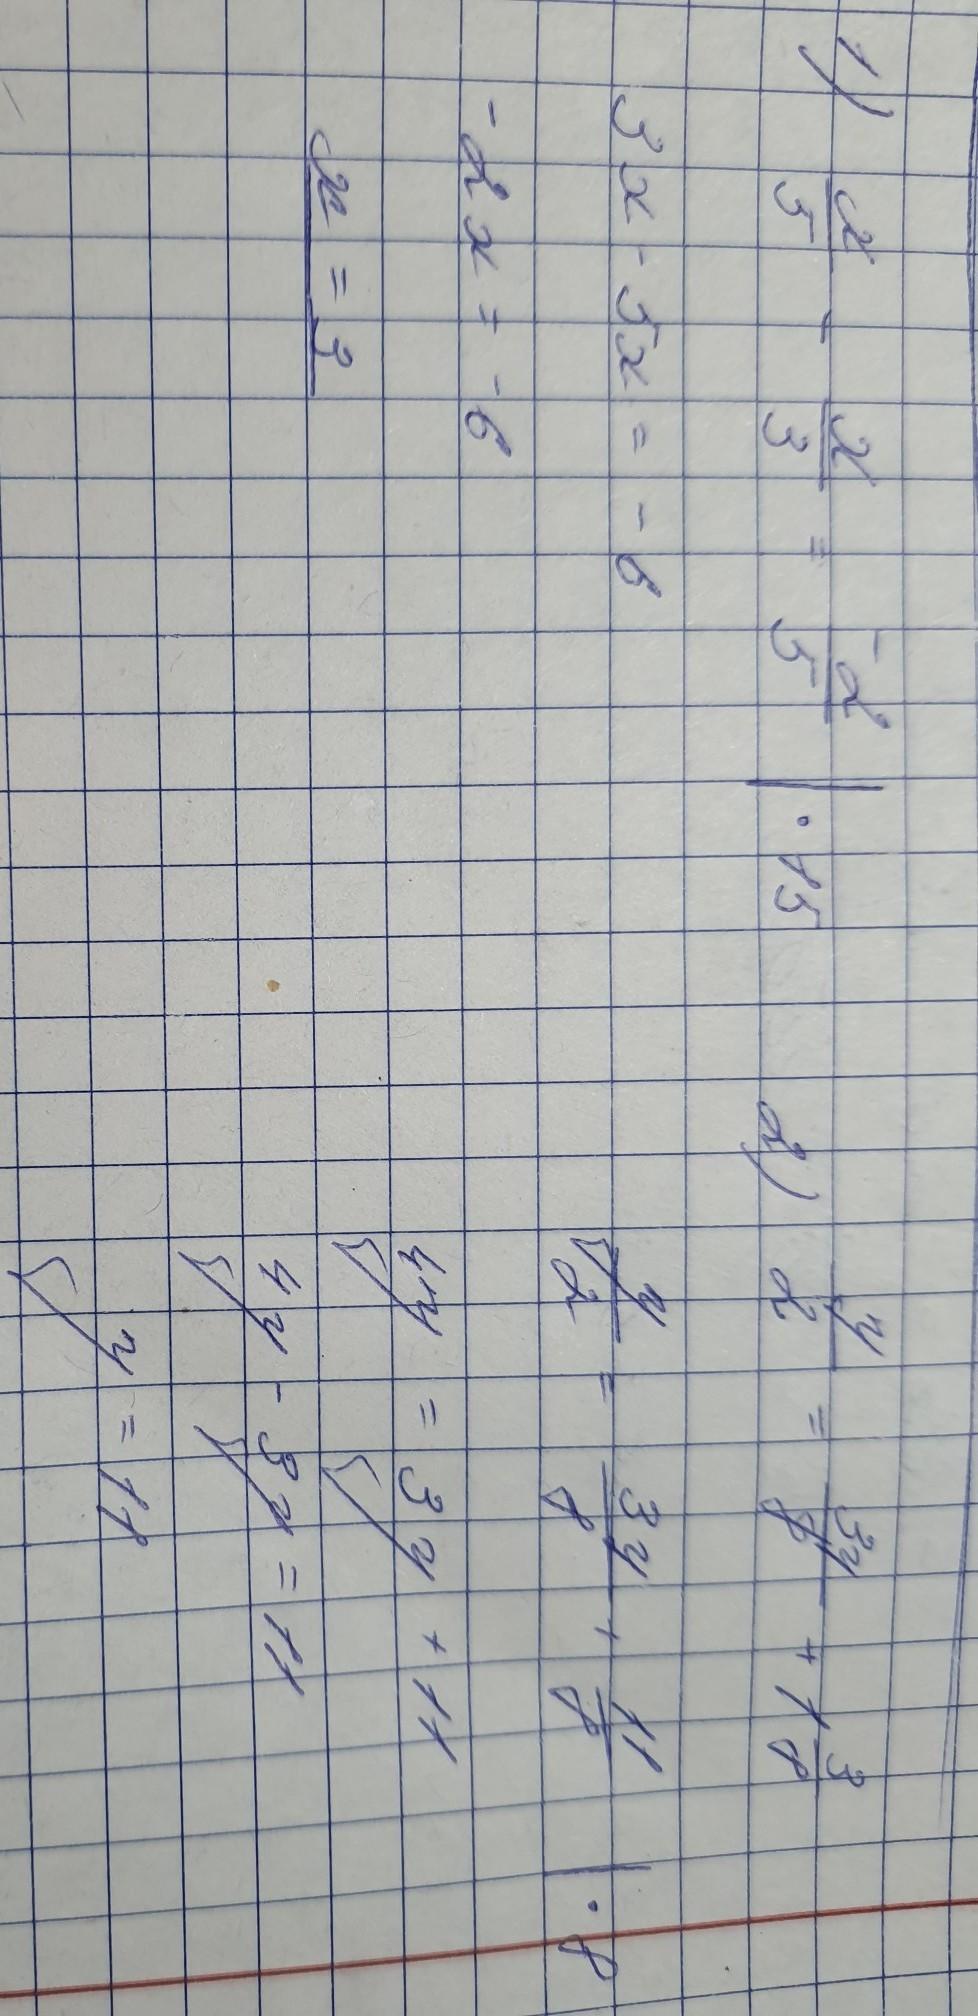 1) x/5 - x/3 = -2/5 | · 15
3x - 5x = -6
-2x = -6
x = 3
2) y/2 = 3y/8 + 1 3/8
y/2 = 3y/8 + 11/8 | · 8
4y = 3y + 11
4y - 3y = 11
y = 11